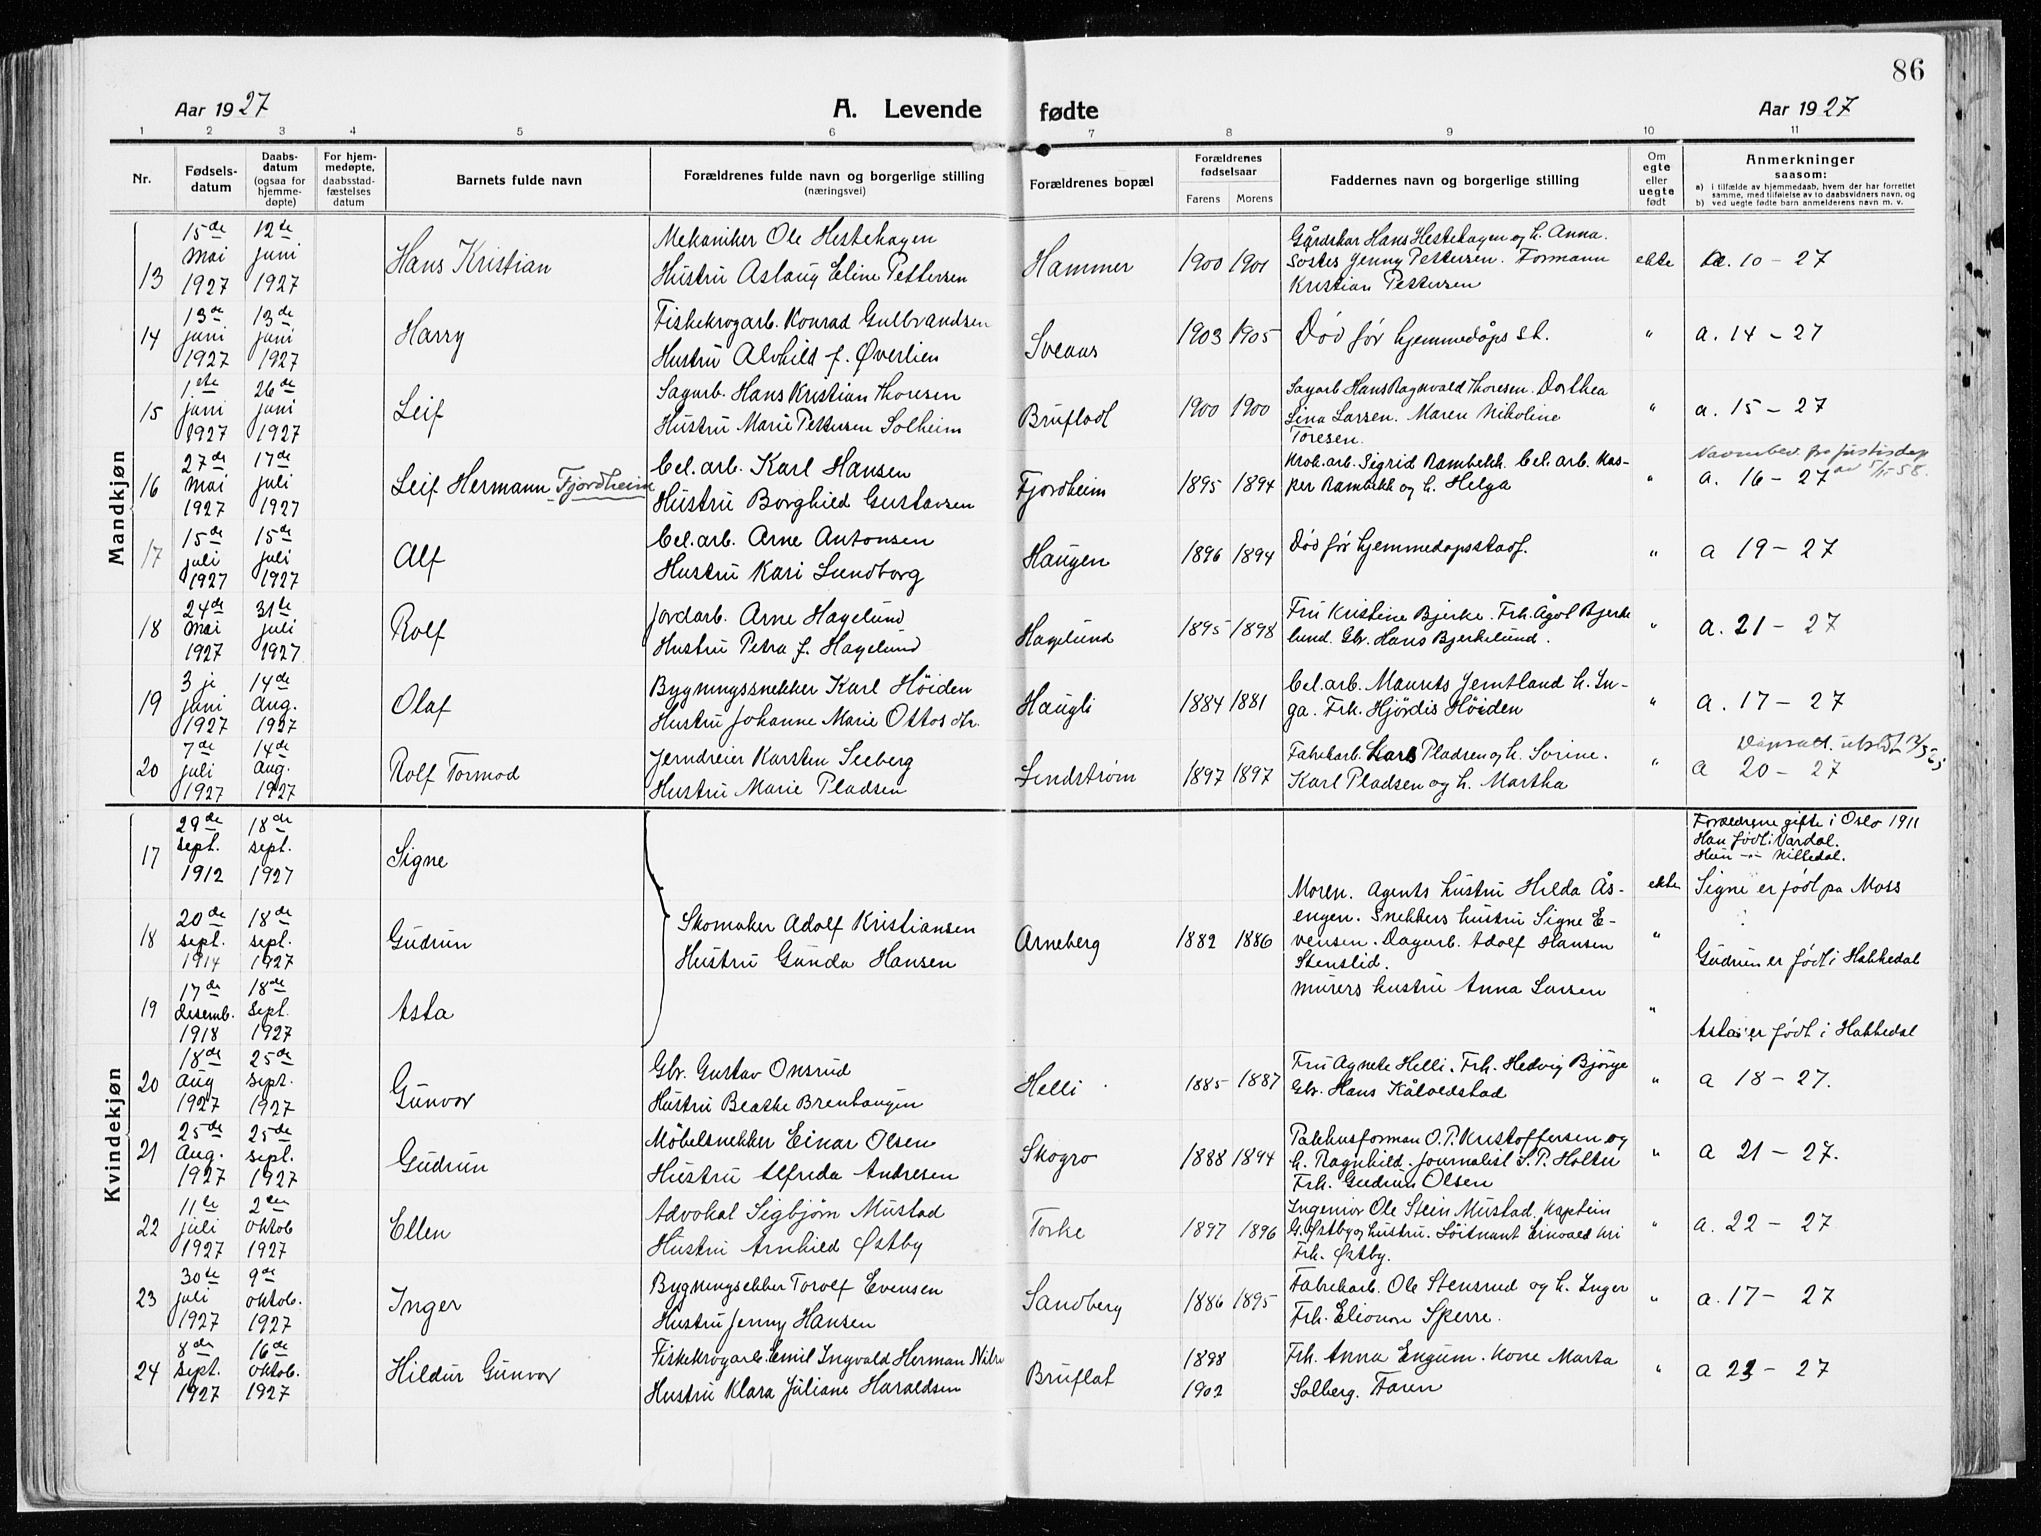 86
Aar 1927 A. Levende fødte Aar 1927
1 2 3 4 5 6 7 8 9 10 11
Nr.
Fødsels-
datum
Daabs-
datum
(ogsaa for
hjemme-
døpte)
For hjem-
medøpte,
daabsstad-
fæstelses
datum
Barnets fulde navn
Forældrenes fulde navn og borgerlige stilling
(næringsvei)
Forældrenes bopæl
Forældrenes
fødselsaar
Farens Morens
Faddernes navn og borgerlige stilling
Om
egte
eller
uegte
født
Anmerkninger
saasom:
a) i tilfælde av hjemmedaab, hvem der har forrettet
samme, med tilføielse av to daabsvidners navn, og
b) ved uegte fødte barn anmelderens navn m. v.
Mandkjøn
13
15de
Mai
1927
12te
juni
1927
Hans Kristian
Mekaniker Ole Hestehagen
Hustru Aslaug Eline Pettersen
Hammer
1900 1901
Gårdskar Hans Hestehagen og h. Anna.
Søster Jenny Pettersen. Formann
Kristian Pettersen
ekte
a. 10 - 27
14
13de
juni
1927
13de
juni
1927
Harry
Fiskekrogarb. Konrad Gulbrandsen
Hustru Alvhild f. Øverlien
Sveaas
1903 1905
Død før hjemmedåps st.
"
a. 14 - 27
15
1.ste
juni
1927
26de
juni
1927
Leif
Sagarb. Hans Kristian Thoresen
Hustru Marie Pettersen Solheim
Brufladt
1900 1900
Sagarb Hans Ragnvald Thoresen. Dorthea
Lina Larsen. Maren Nikoline
Toresen.
"
a. 15 - 27
16
27de
Mai
1927
17de
juli
1927
Leif Hermann Fjordheim
Cel. arb. Karl Hansen
Hustru Borghild Gustavsen
Fjordheim
1895 1894
Krok.arb. Sigrid Rambekk. Cel. arb. Kas-
per Rambekk og h. Helga
"
Navnebev. fra justisdep
av 5/11 58.
a. 16 - 27
17
15de
juli
1927
15de
juli
1927
Alf
Cel. arb. Arne Antonsen
Hustru Kari Lundborg
Haugen
1896 1894
Død før hjemmedapsstadf.
"
a 19 - 27
18
24de
Mai
1927
31te
juli
1927
Rolf
Jordarb. Arne Hagelund
Hustru Petra f. Hagelund
Hagelund
1895 1898
Fru Kristine Bjerke. Frk. Ågot Bjerke
lund. Gbr. Hans Bjerkelund.
"
a. 21 - 27
19
3 je
juni
1927
14de
Aug.
1927
Olaf
Bygningssnekker Karl Höiden
Hustru Johanne Marie Ottos dtr.
Haugli
1884 1881
Cel. arb. Maurits Jemtland h. In-
ga. Frk. Hjördis Höiden
"
a. 17 - 27
20
7de
juli
1927
14de
Aug.
1927
Rolf Tormod
Jerndreier Karsten Seeberg
Hustru Marie Pladsen
Lindstrøm
1897 1897
Fabrikarb. Lars Pladsen og h. Sorine.
Karl Pladsen og h. Martha
"
a 20 - 27
Kvindekjøn
17
29de
sept.
1912
18de
sept.
1927
Signe
Forældrene gifte i Oslo 1911
Han født i Vardal.
Hun -"- Nittedal.
ekte
Signe er født på Moss
18
20de
sept.
1914
18de
sept.
1927
Gudrun
Skomaker Adolf Kristiansen
Hustru Gunda Hansen
Arneberg
1882 1886
Moren. Agents hustru Hilda Ås-
engen. Snekkers hustru Signe E-
vensen. Dagarb. Adolf Hansen
Stenslid.
Murers hustru Anna Larsen
"
Gudrun er født i Hakkedal
19
17de
desemb.
1918
18de
Sept.
1927
Asta
"
Asta er født i Hakkedal
20
18de
Aug
1927
25de
sept.
1927
Gunvor
Gbr. Gustav Onsrud
Hustru Beathe Brenhaugen
Helli
1885 1887
Fru Agnete Helli. Frk. Hedvig Bjørge
Gbr. Hans Kålvedstad
"
a 18 - 27.
21
25de
Aug.
1927
25de
sept.
1927
Gudrun
Møbelsnekker Einar Olsen
Hustru Alfrida Andresen
Skogro
1888 1894
Pakhusforman O. P. Kristoffersen og
h. Ragnhild. Journalist S. P. Holter
Frk. Gudrun Olsen
"
a 21 - 27.
22
11te
juli
1927
2den
oktob
1927
Ellen
Advokat Sigbjørn Mustad
Hustru Arnhild Østby
Torke
1897 1896
Ingeniør Ole Stein Mustad. Kaptein
G. Østby og hustru. Löitnant Einvald
Frk. Østby.
"
a. 22 - 27
23
30te
juli
1927
9de
oktob.
1927
Inger
Torolf Evensen
Hustru Jenny Hansen
Sandberg
1886 1895
Fabrikarb. Ole Stensrud og h. Inger
Frk. Elionor Sperre.
"
a. 17 - 27
24
8de
sept.
1927
16de
oktob.
1927
Hildur Gunvor
Fiskekrogarb. Emil Ingvald Herman
Hustru Klara Juliane Haraldsen
Bruflat
1898
1902
Frk. Anna Engum. Kone Marta
Solberg. Faren
"
a 23 - 27